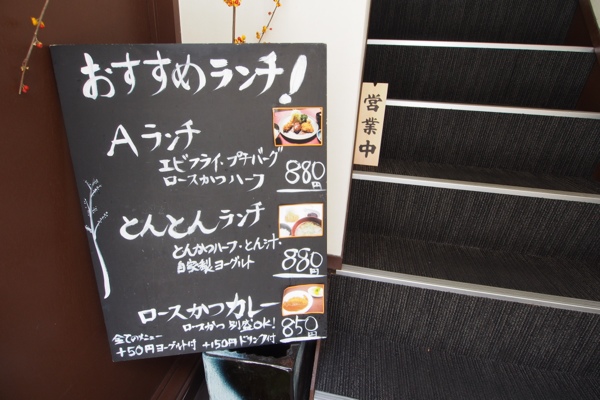 おすすめランチ!
Aランチ
エビフライ・プチバーグ
ロースかつハーフ
880円
とんとんランチ
とんかつハーフ・とん汁・
自家製ヨーグルト
880円
ロースかつカレー
ロースかつ別盛OK!
850円
全てのメニュー
+50円ヨーグルト付 +150円ドリンク付
営業中